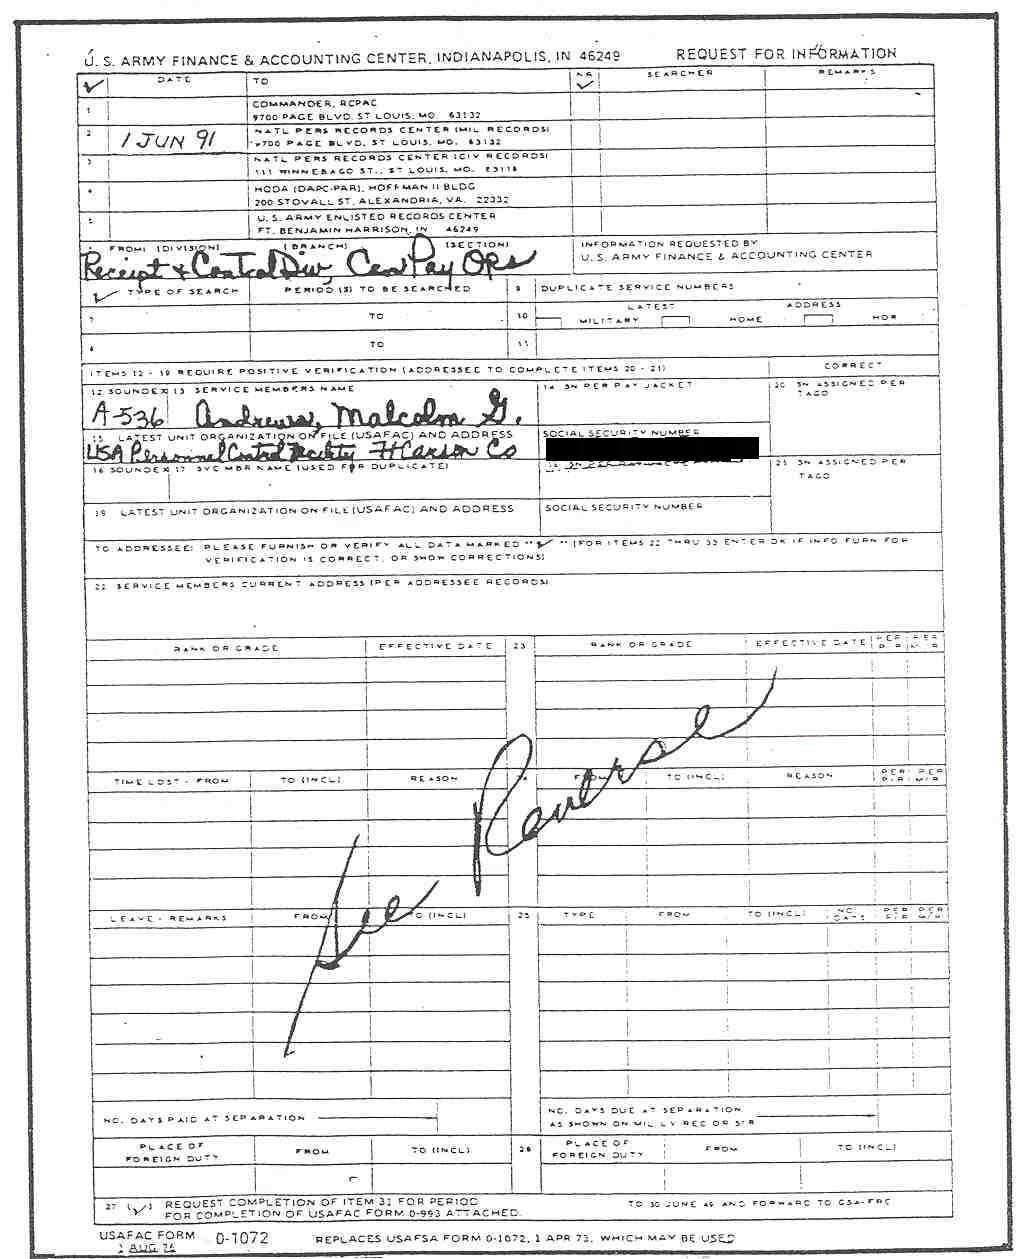 U. S. ARMY FINANCE & ACCOUNTING CENTER, INDIANAPOLIS, IN 46249 REQUEST FOR INFORMATION
✓ DATE TO ✓ SEARCHER REMARKS
1 COMMANDER, RCPAC
9700 PAGE BLVD. ST LOUIS, MO. 63132
2 1 JUN 91 NATL PERS RECORDS CENTER (MIL RECORDS)
9700 PAGE BLVD, ST LOUIS, MO. 63132
3 NATL PERS RECORDS CENTER (CIV RECORDS)
111 WINNEBAGO ST., ST LOUIS, MO. 63118
4 HODA (DAPC-PAR), HOFFMAN II BLDG
200 STOVALL ST, ALEXANDRIA, VA. 22332
5 U. S. ARMY ENLISTED RECORDS CENTER
FT. BENJAMIN HARRISON, IN 46249
FROM: (DIVISION) (BRANCH) (SECTION) INFORMATION REQUESTED BY
Receipt & Control Div, Cen Pay Ops U. S. ARMY FINANCE & ACCOUNTING CENTER
✓ TYPE OF SEARCH PERIOD (S) TO BE SEARCHED 9 DUPLICATE SERVICE NUMBERS
LATEST ADDRESS
7 TO 10 MILITARY HOME HOR
8 TO 11
ITEMS 12 - 19 REQUIRE POSITIVE VERIFICATION (ADDRESSEE TO COMPLETE ITEMS 20 - 21) CORRECT
12 SOUNDEX 13 SERVICE MEMBERS NAME 14 SN PER PAY JACKET 20 SN ASSIGNED PER
TAGO
A-536 Andrews, Malcolm G.
15 LATEST UNIT ORGANIZATION ON FILE (USAFAC) AND ADDRESS SOCIAL SECURITY NUMBER
USA Personnel Control Facility Ft Carson Co
16 SOUNDEX 17 SVC MBR NAME (USED FOR DUPLICATE) 21 SN ASSIGNED PER
TAGO
19 LATEST UNIT ORGANIZATION ON FILE (USAFAC) AND ADDRESS SOCIAL SECURITY NUMBER
TO ADDRESSEE: PLEASE FURNISH OR VERIFY ALL DATA MARKED "✓" (FOR ITEMS 22 THRU 33 ENTER OK IF INFO FURN FOR
VERIFICATION IS CORRECT, OR SHOW CORRECTIONS)
22 SERVICE MEMBERS CURRENT ADDRESS (PER ADDRESSEE RECORDS)
RANK OR GRADE EFFECTIVE DATE 23 RANK OR GRADE EFFECTIVE DATE PER PER
See Reverse
TIME LOST - FROM TO (INCL) REASON FROM TO (INCL) REASON PER PER
LEAVE - REMARKS FROM TO (INCL) 25 TYPE FROM TO (INCL) NO. DAYS PER PER
NO. DAYS PAID AT SEPARATION NO. DAYS DUE AT SEPARATION
AS SHOWN ON MIL LV REC OR STR
PLACE OF
FOREIGN DUTY FROM TO (INCL) 26 PLACE OF
FOREIGN DUTY FROM TO (INCL)
27 (✓) REQUEST COMPLETION OF ITEM 31 FOR PERIOD TO 30 JUNE 49 AND FORWARD TO GSA-FRC
FOR COMPLETION OF USAFAC FORM 0-993 ATTACHED.
USAFAC FORM 0-1072 REPLACES USAFSA FORM 0-1072, 1 APR 73, WHICH MAY BE USED
1 AUG 76